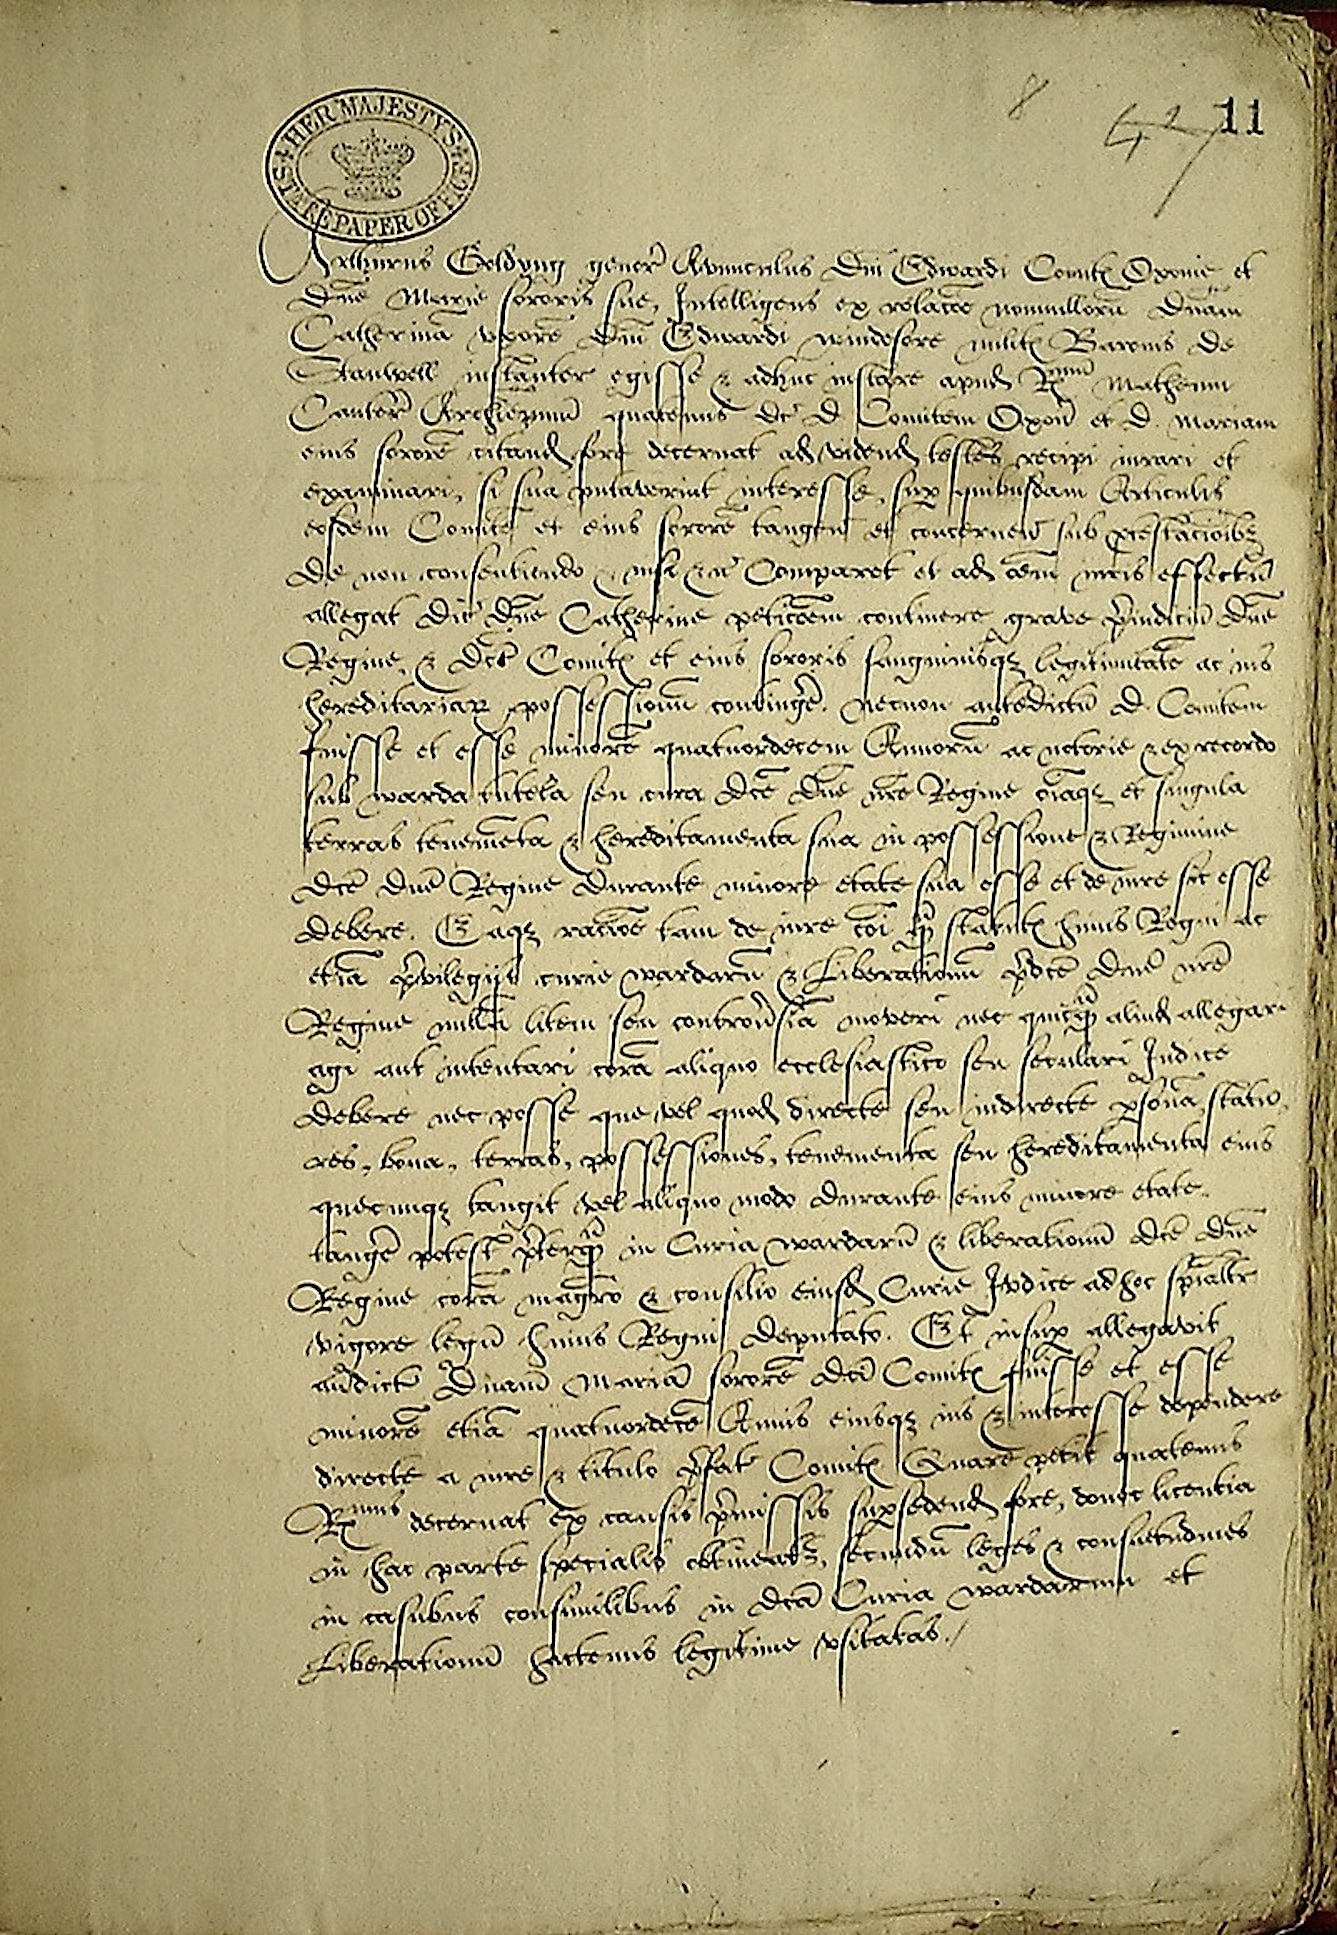 HER MAJESTY'S
STATE PAPER OFFICE
8
47
11
Arthurus Goldyng genero Avunculus dni Edwardi Comit Oxonie et
dne Marie sororis sue, Intelligens ex relacoe nonnullorũ dnam
Catherinã uxorẽ dni Edwardi windesore militis Baronis de
Stanwell instanter egisse & adhuc instare apud Rmum Matheum
Cantuar Archiepum quatenus dc d Comitem Oxon et d. Mariam
eius sororẽ citand fore decernat ad vidend testes recipi iurari et
examinari, si sua putaverint interesse, sup quibusdam Articulis
eosdem Comitẽ et eius sororẽ tangen et concernen sub ptestacioibz
de non consentiendo & Comparet et ad oẽm iuris effectũ
allegat dic dne Catherine peticoem continere grave piudiciũ dne
Regine, & dcti Comit et eius sororis sanguinisqz legitimitatẽ ac ius
hereditariar possessionũ contingẽ. necnon antedictũ d. Comitem
fuisse et esse minorẽ quatuordecem Annorũ ac notorie & ex recordo
sub warda tutela seu cura dce dne nre Regine oiaqz et singula
terras tenemẽta & hereditamenta sua in possessione & Regimine
dce dne Regine durante minore etate sua esse et de iure sic esse
debere. Eaqz racioe tam de iure coi qm statut huius Regni ac
etiã privilegijs curie wardarũ & Liberationũ pdce dne nre
Regine nullã litem seu controvsiã moveri nec quicqm aliud allegari
agi aut intentari corã aliquo ecclesiastico seu seculari Iudice
debere nec posse que vel quod directe seu indirecte psonã statũ
res, bona, terras, possessiones, tenementa seu hereditamenta eius
quecunqz tangit vel aliquo modo durante eius minore etate
tangẽ potest pterqm in Curia wardarũ & liberationũ dce dne
Regine corã magro & consilio eiusd Curie Iudice ad hoc spialtr
vigore legũ huius Regni deputato. Et insup allegavit
antedict dnam Mariã sororẽ dci Comit fuisse et esse
minorẽ etiã quatuordecẽ Annis eiusqz ius & interesse dependere
directe a iure & titulo pfat Comit Quare petit quatenus
Rmus decernat ex causis pmissis supsedend fore, donec licentia
in hac parte specialis obtineatr, secundũ leges & consuetudines
in casibus consimilibus in dca Curia wardarum et
Liberationũ hactenus legitime usitatas./